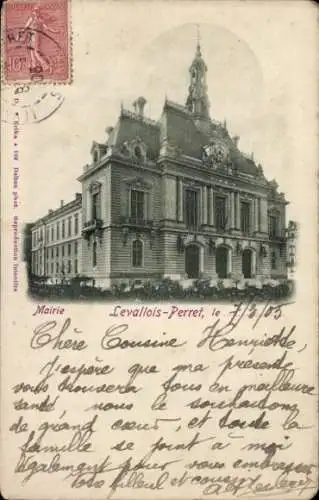 Mairie Levallois-Perret, le 7/5/05
Chère Cousine Henriette,
J'espère que ma présente
vous trouvera tous en meilleure
santé, nous le souhaitons
de grand cœur, et toute la
famille se joint à moi
également pour vous embrasser
tous filleul et cousine